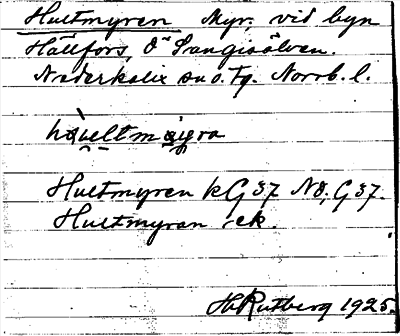 Hultmyren Myr vid byn
Hällfors, Ö Sangisälven.
Nederkalix sn o. tg. Norrb. l.
Hultmyren kG 37 NO, G 37.
Hultmyran ek.
H. Rutberg 1925.